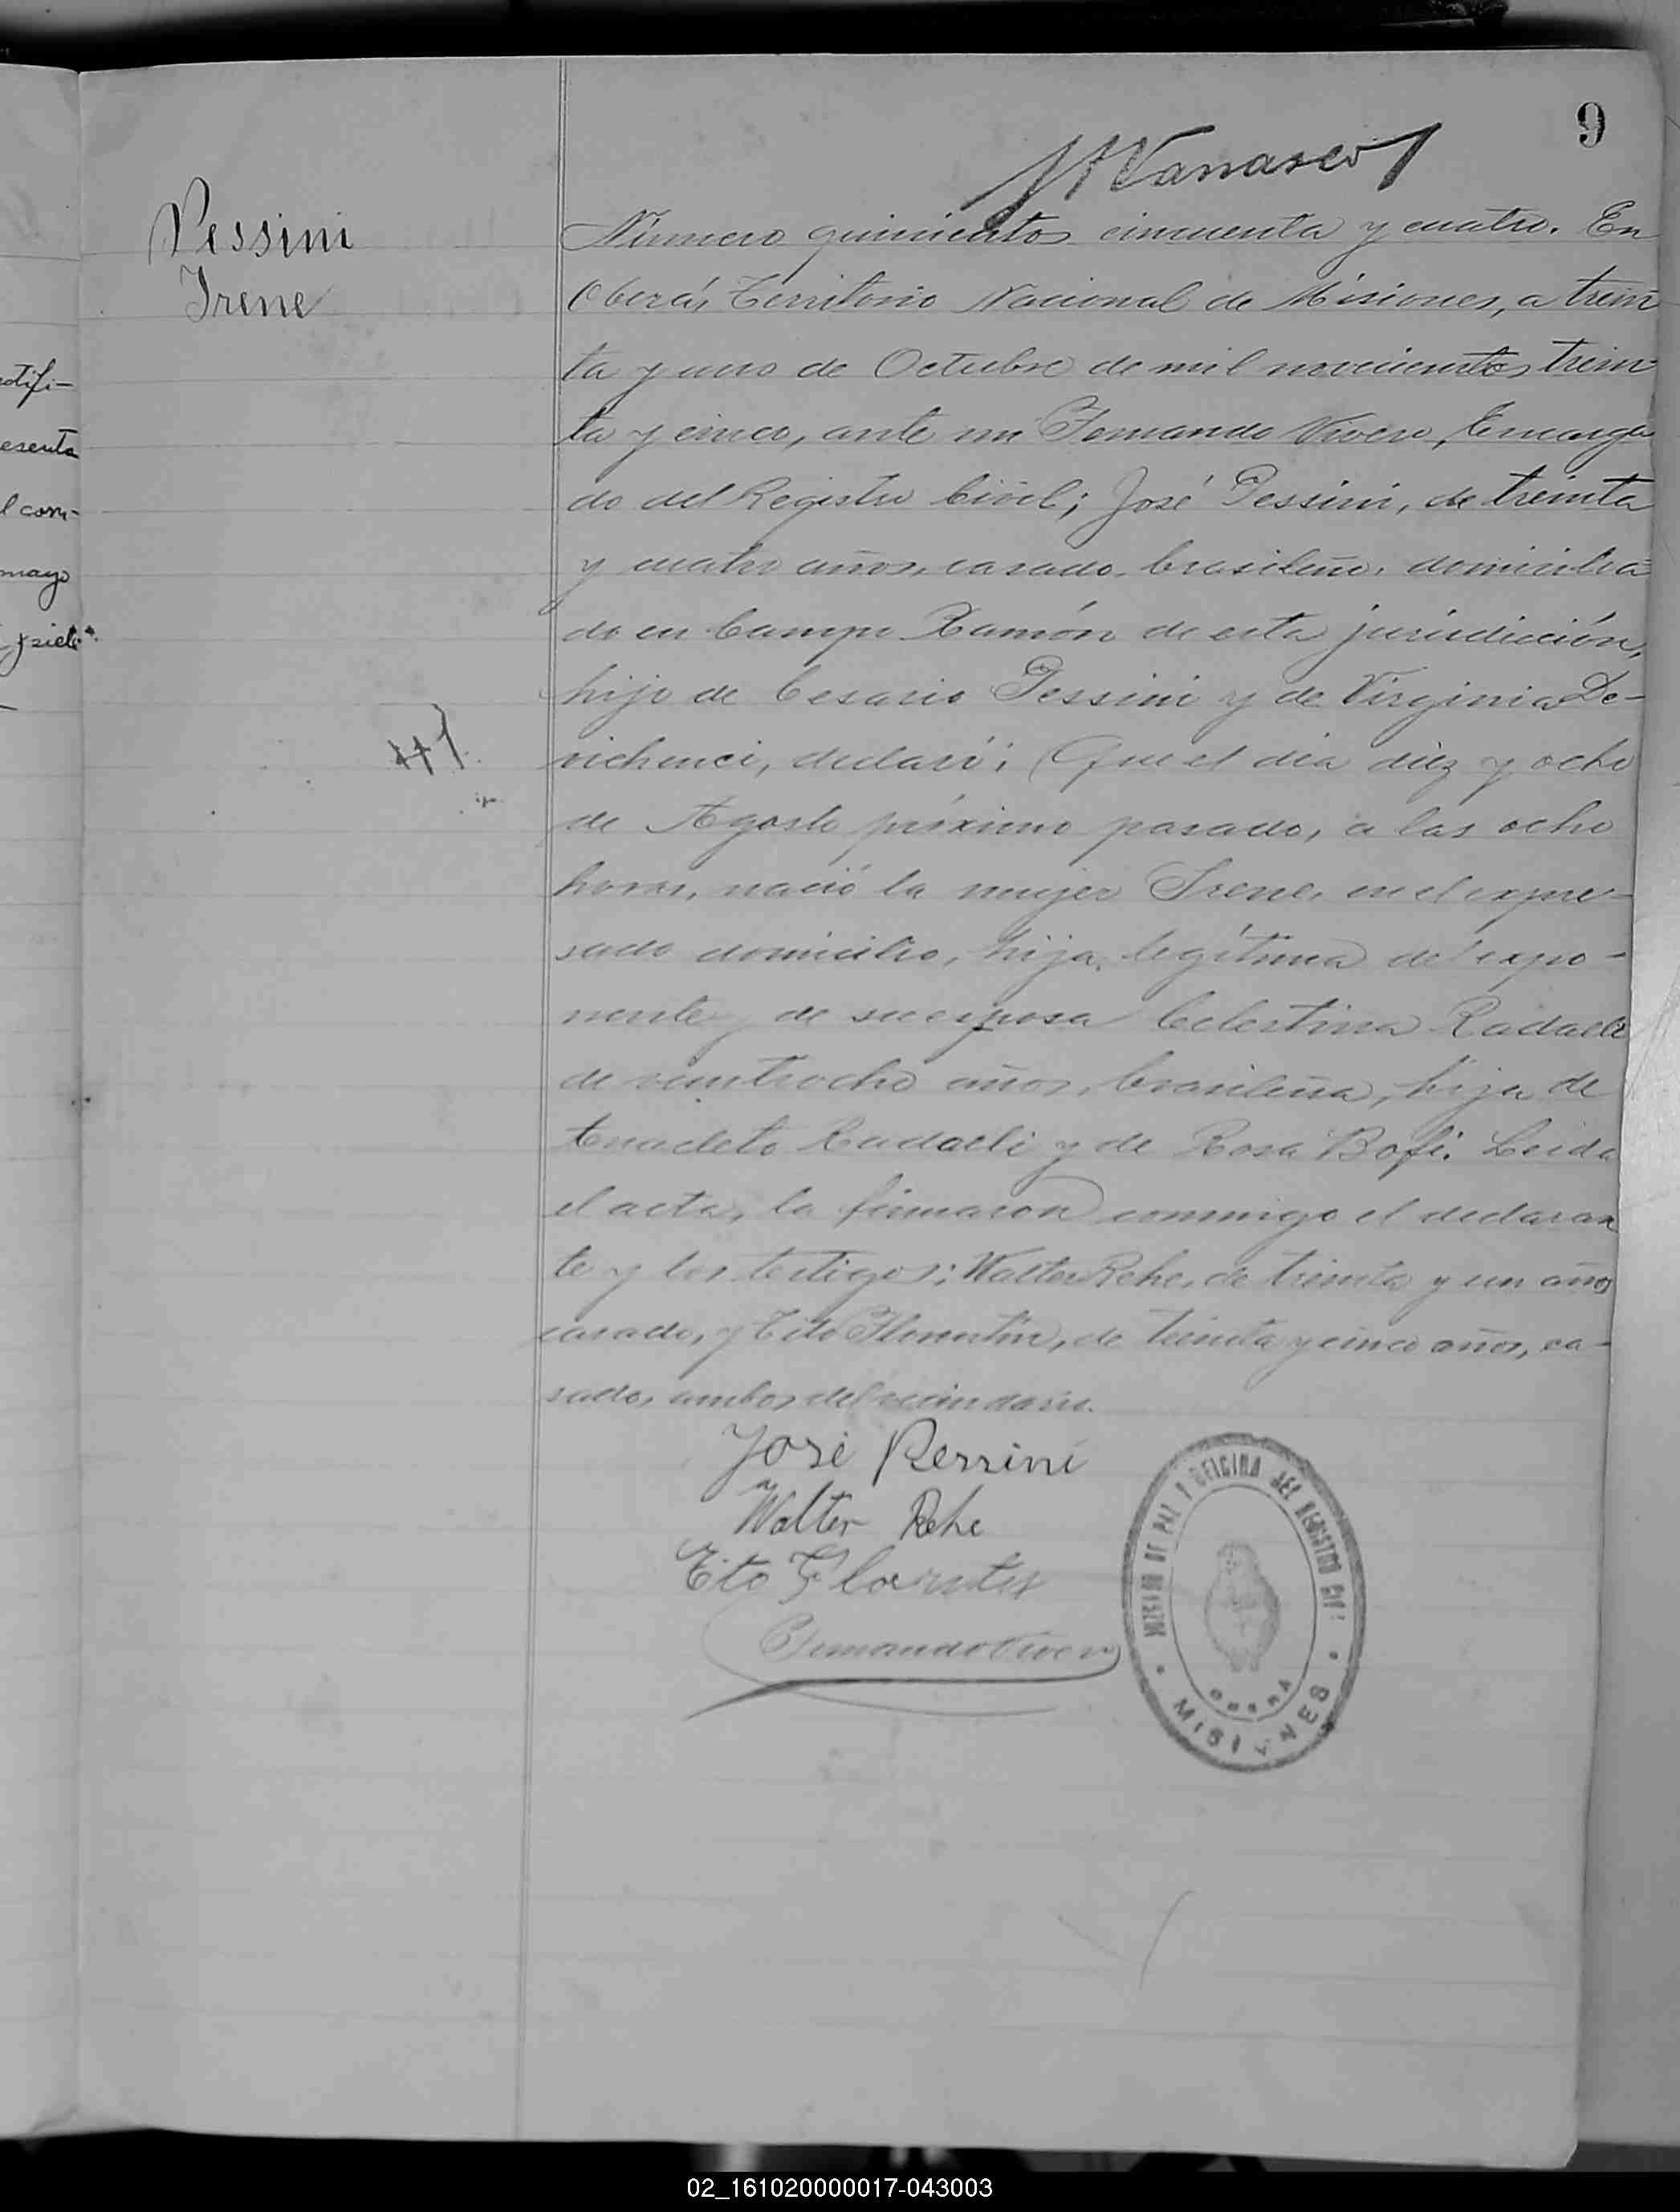 9
Pessini
Irene
Número quinientos cincuenta y cuatro. En
Oberá, Territorio Nacional de Misiones, a trein
ta y uno de Octubre de mil novecientos trein
ta y cinco, ante mi Fernando Vivero, Encarga
do del Registro Civil; José Pessini, de treinta
y cuatro años, casado, brasileño, domicilia
do en Campo Ramón de esta jurisdicción,
hijo de Cesario Pessini y de Virginia De-
declaró; Que el día diez y ocho
de Agosto próximo pasado, a las ocho
horas, nació la mujer Irene, en el expre-
sado domicilio, hija legítima del expo-
nente y de su esposa Celestina Radaeli
de veintiocho años, brasileña, hija de
Anacleto Radaeli y de Rosa Bofi. Leida
el acta, la firmaron conmigo el declaran
te y los testigos; Walter Rehe, de treinta y un años
casado, y Tito Florentin, de treinta y cinco años, ca-
sado, ambos del vecindario.
José Pessini
Walter Rehe
Tito Florentin
Fernando Vivero
JUZGADO DE PAZ Y OFICINA DEL REGISTRO CIVIL
OBERÁ
MISIONES
otifi-
esenta
l corri-
mayo
02_161020000017-043003